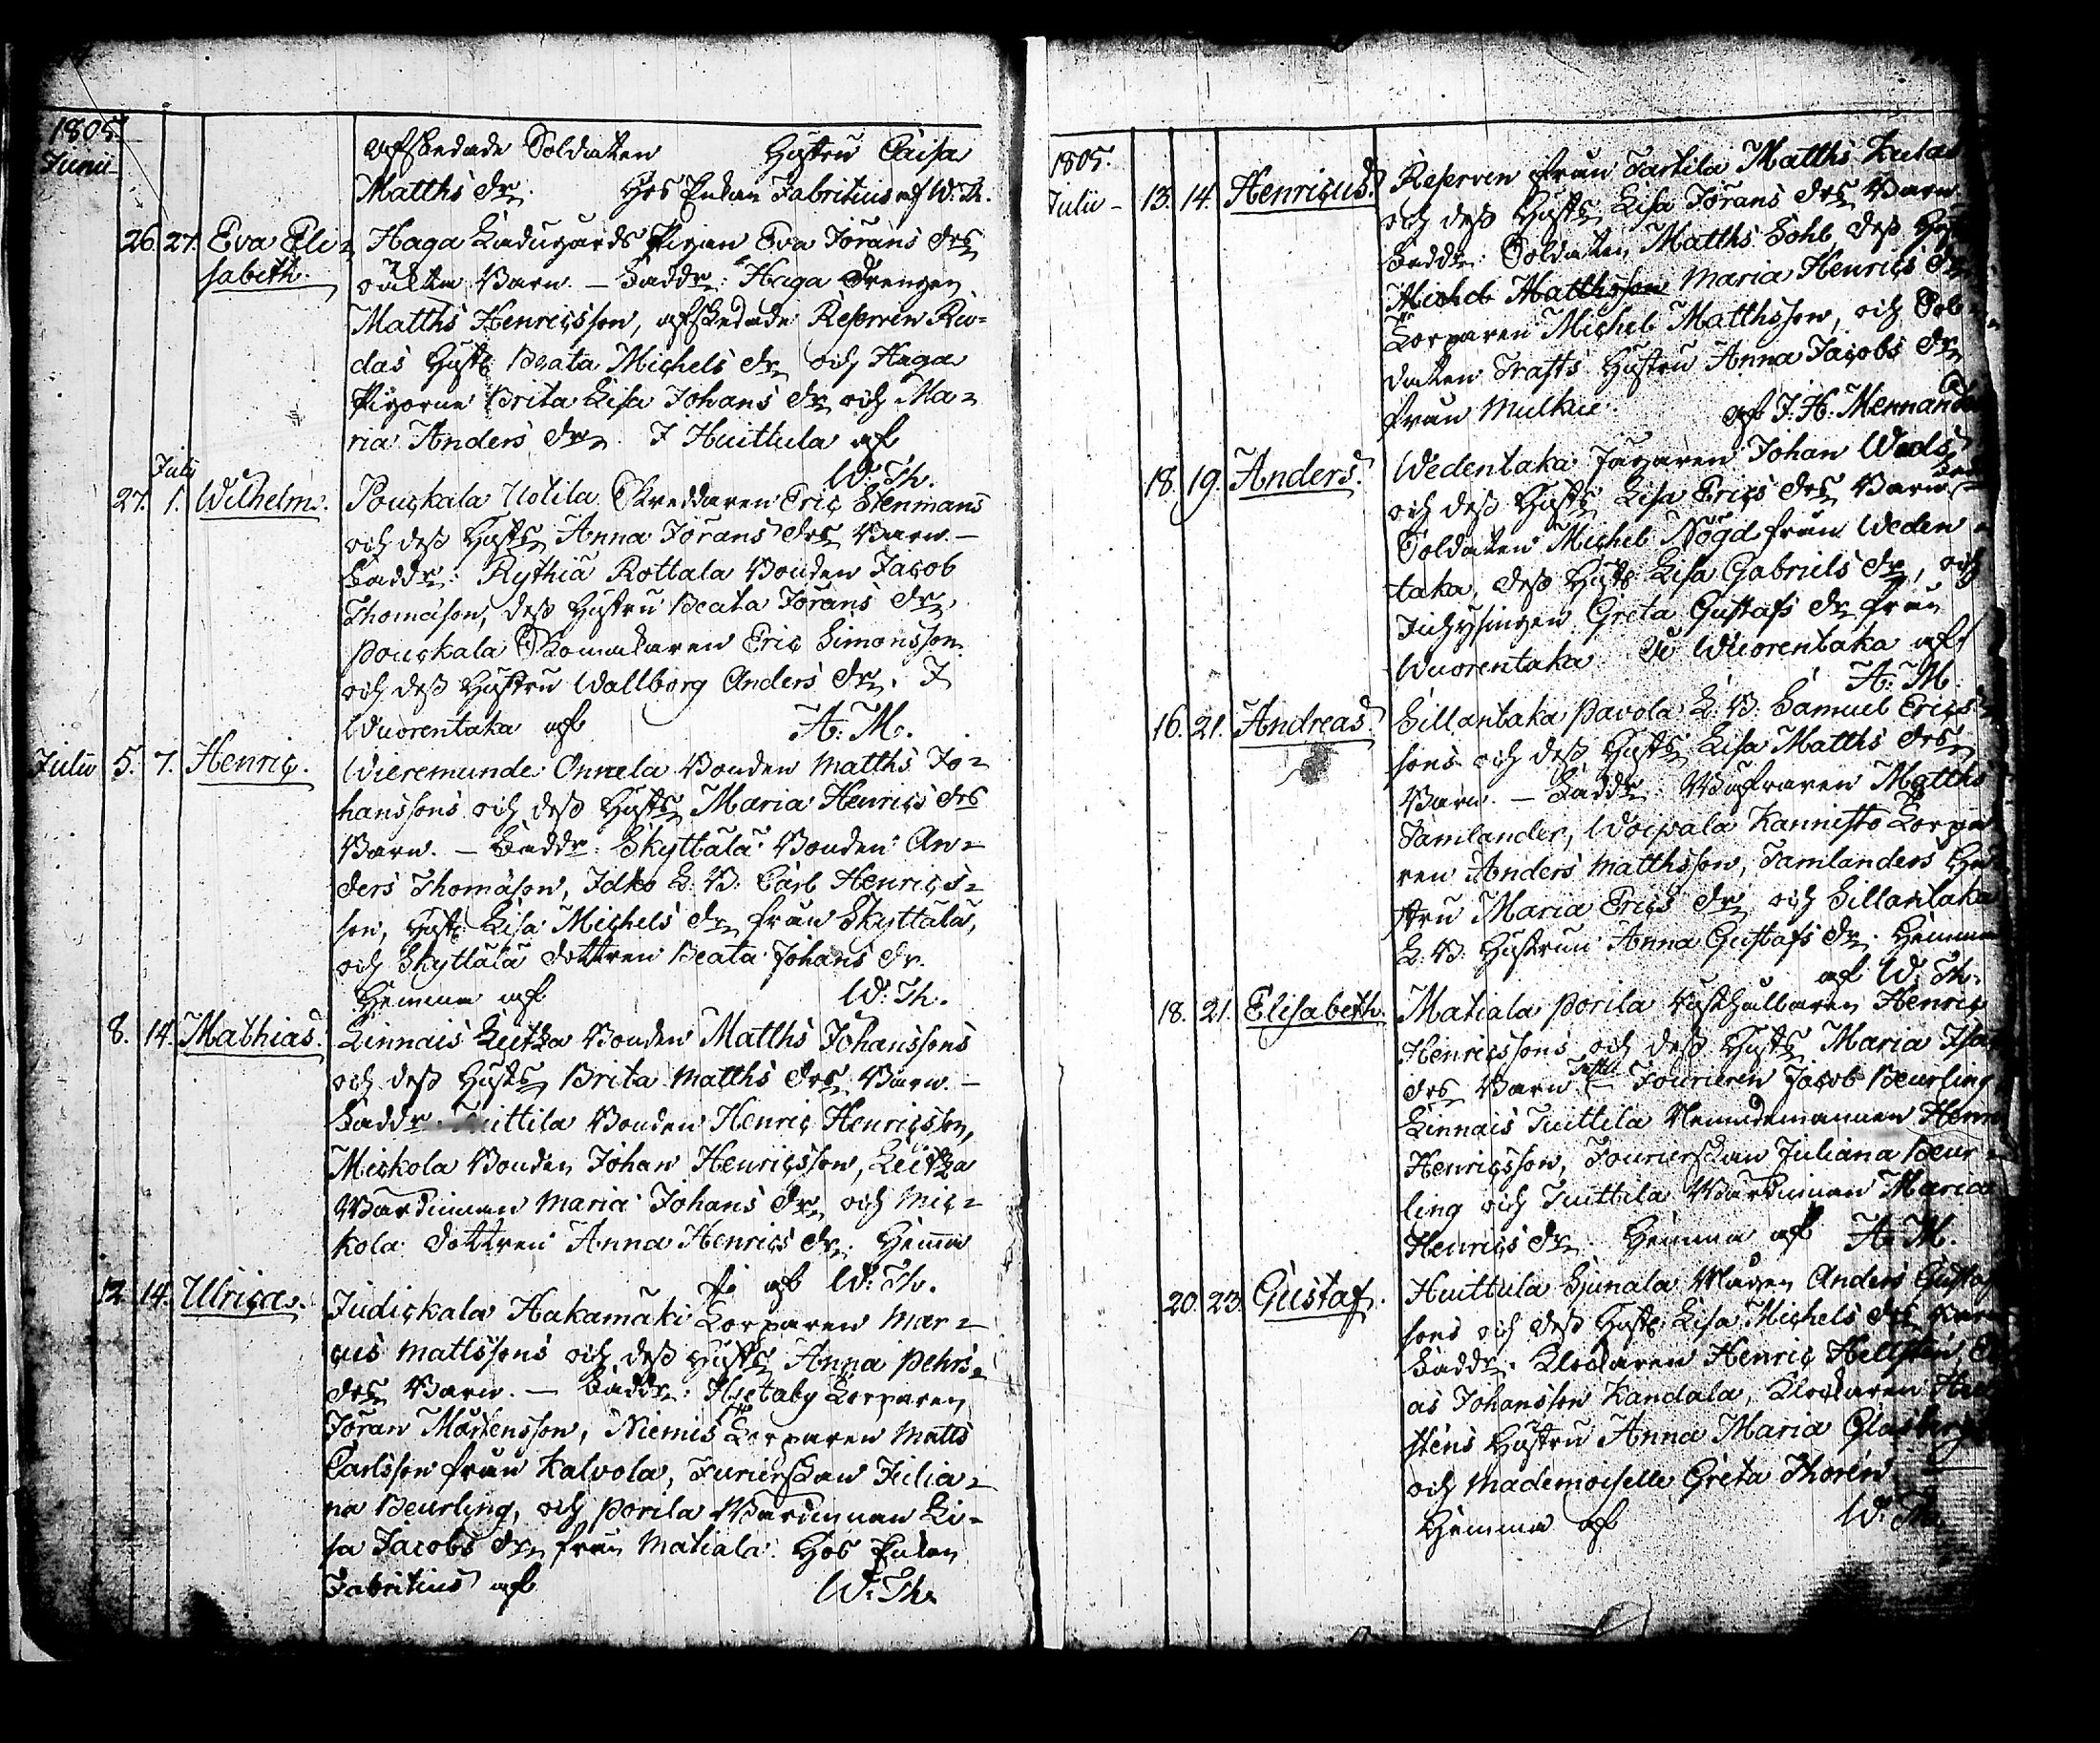 1805.
Junii
afskedade Soldaten Hustru Caisa
Matths dr. Hos Enkan Fabritius af W. Th.
26. 27. Eva Eli= Haga Ladugårds Pigan Eva Jörans drs
sabeth. oäkta Barn. — Faddr: Haga Drengen
Matths Henricsson, afskedade Reserven Ru=
das Hust: Beata Michels dr och Haga
Pigorne Brita Lisa Johans dr och Ma=
ria Anders dr. I Huittula af
W. Th.
Julii
27. 1. Wilhelm. Pouckala Uotila Skreddaren Eric Stenmans
och dess Husts Anna Jörans drs Barn. —
Faddr: Rythiä Rottala Bonden Jacob
Thomäson, dess Hustru Beata Jörans dr,
Pouckala Skomakaren Eric Simonsson
och dess Hustru Wallborg Anders dr. I
Wuorentaka af A. M.
Julii 5. 7. Henric. Wieremunde Onnela Bonden Matths Jo=
hanssons och dess Husts Maria Henrics drs
Barn. — Faddr: Skyttälä Bonden An=
ders Thomäson, Idko L. B. Carl Henrics=
son, Hust: Lisa Michels dr från Skyttälä,
och Skyttälä dottren Beata Johans dr.
Hemma af W. Th.
8. 14. Mathias. Linnais Bonden Matths Johanssons
och dess Husts Brita Matths drs Barn. —
Faddr: Tuittila Bonden Henric Henricsson,
Mickola Bonden Johan Henricsson,
Wärdinnan Maria Johans dr, och Mic=
kola dottren Anna Henrics dr. Hemma
af W. Th.
12. 14. Ulrica. Judickala Hakamäki Torparen Mar=
cus Mattssons och dess Husts Anna Pehrs
drs Barn. — Faddr: Hietaby Torparen
Jöran Mårtensson, Niemis Torparen Matts
Carlsson från Kalvola, Furierskan Julia=
na Beurling, och Porila Wärdinnan Li=
sa Jacobs dr från Matiala. Hos Enkan
Fabritius af W. Th.
1805.
Julii 13. 14. Henricus. Reserven från Tartila Matths
och dess Husts Lisa Jörans drs Barn.
Faddr: Soldaten Matths Sohl, dess
Michel Matthsson Maria Henrics dr
Torparen Michel Matthsson, och Sol=
daten Trafts Hustru Anna Jacobs dr
från Mulkie. af J. H. Mennander
18. 19. Anders. Wedentaka Jägaren Johan
och dess Husts Lisa Erics drs Barn
Soldaten Michel Nögd från Weden=
taka, dess Hust: Lisa Gabriels dr, och
Inhysingen Greta Gustafs dr från
Wuorentaka. I Wuorentaka af
A. M.
16. 21. Andreas. Sillantaka Pavola L. B. Samuel Erics=
sons och dess Husts Lisa Matths drs
Barn. — Faddr: Matths
Tamlander, Woipala Kannisto Torpa=
ren Anders Matthsson, Tamlanders Hu=
stru Maria Erics dr och Sillantaka
L. B. Hustrun Anna Gustafs dr. Hemma
af W. Th.
18. 21. Elisabeth. Matiala Porila Henric
Henricssons och dess Husts Maria
drs Barn. Fourieren Jacob Beurling
Linnais Tuittila Nemndemannen
Henricsson, Fourierskan Juliana Beur=
ling och Tuittila Wärdinnan Maria
Henrics dr. Hemma af A. M.
20. 23. Gustaf. Huittula Hunala Mågen Anders
sons och dess Husts Lisa Michels drs
Faddr. Klockaren Henric Hellsten,
as Johansson Kandala, Klockaren
stens Hustru Anna Maria Glasberg
och Mademoiselle Greta Thorén
Hemma af W. Th.